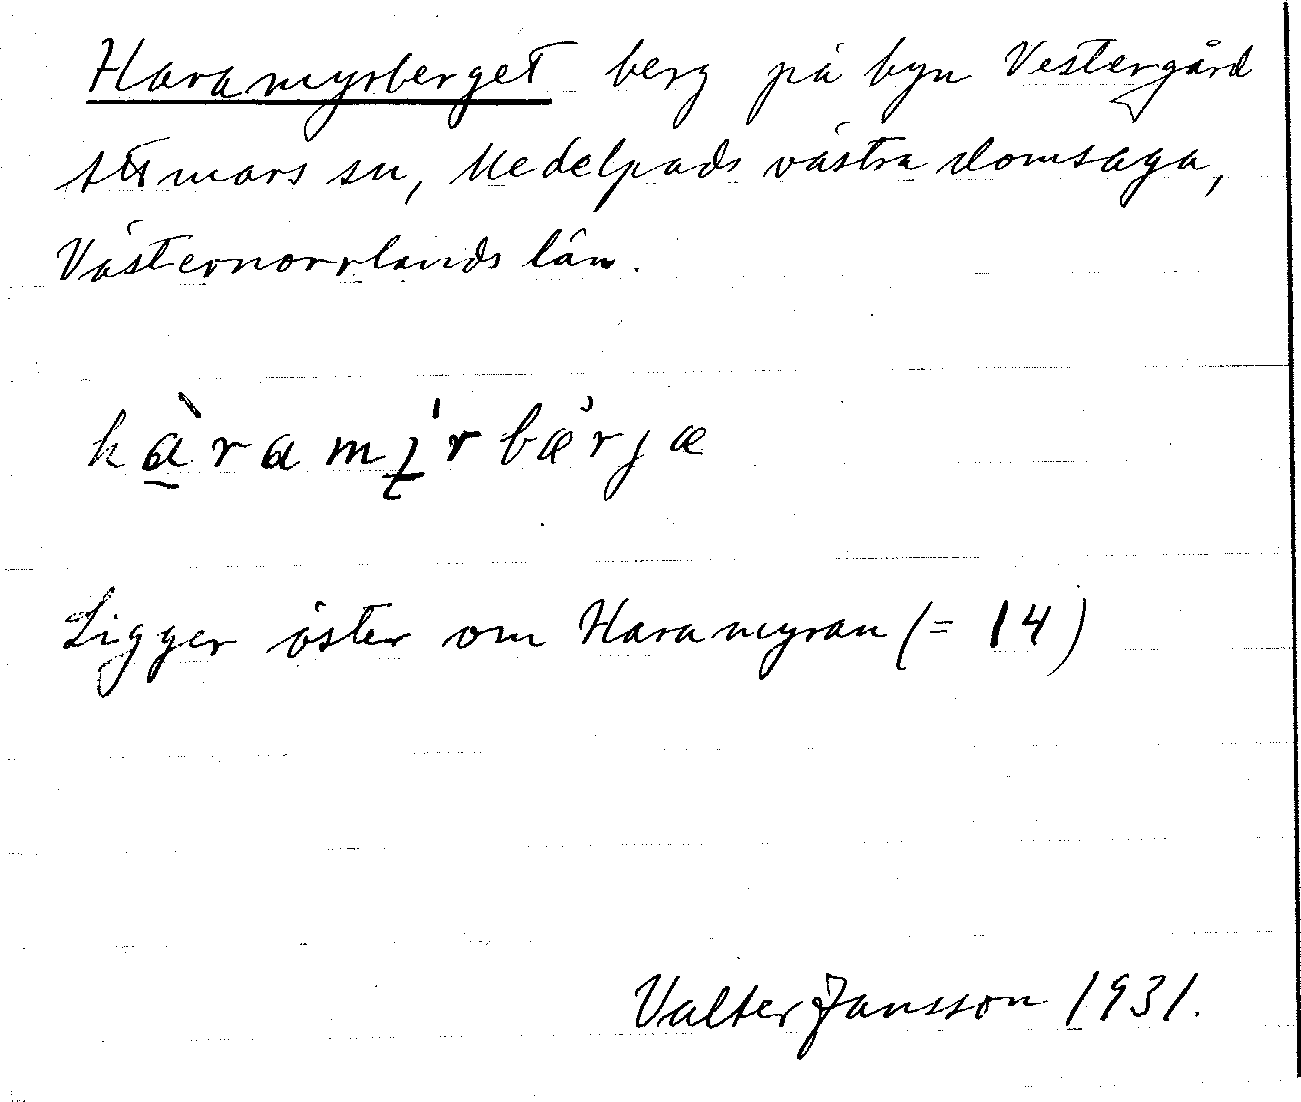 Haramyrberget berg på byn Vestergård
Attmars sn, Medelpads västra domsaga,
Västernorrlands län.
hàramírbærjæ
Ligger öster om Haramyran (= 14)
Valter Jansson 1931.